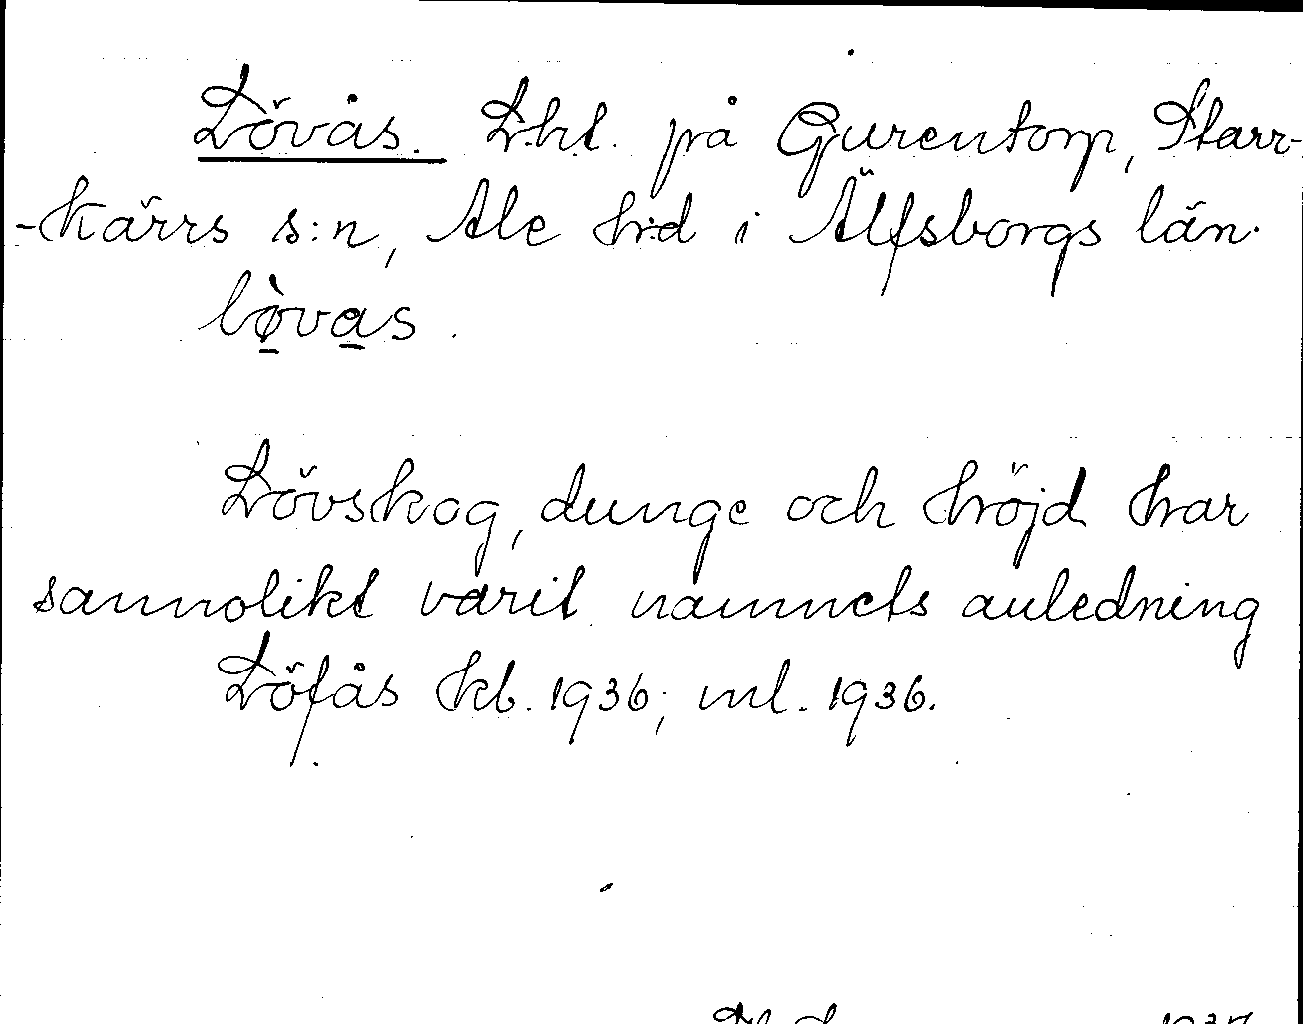 Lövås. L:ht. på Gurentorp, Starr-
-kärrs s:n, Ale h:d i Älfsborgs län.
lø̀vas.
Lövskog, dunge och höjd har
sannolikt varit namnets anledning
Löfås kb. 1936; ml. 1936.